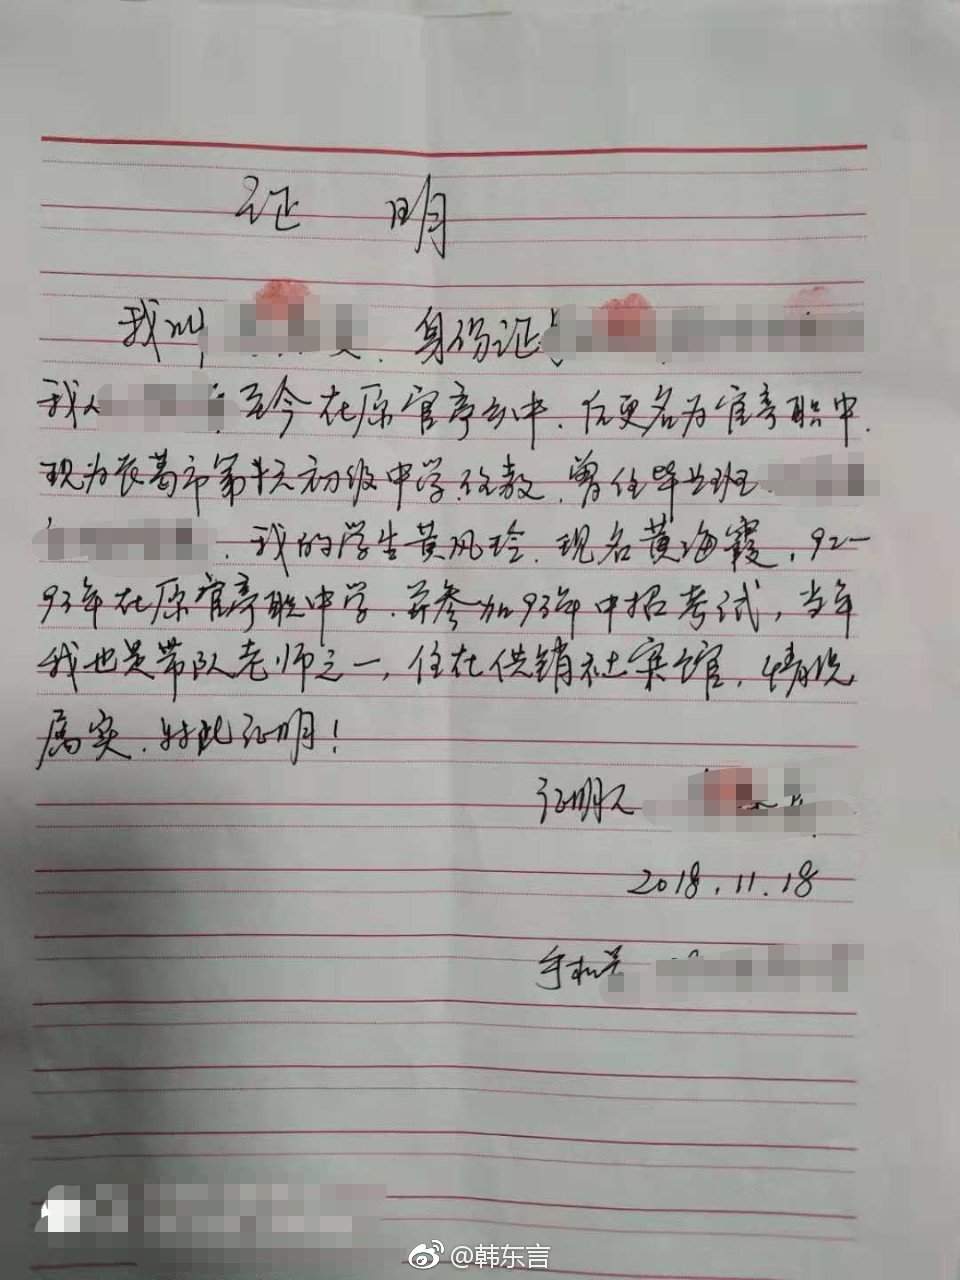 证 明
我叫 身份证
我从 至今在原官亭乡中.后更名为官亭职中.
现为长葛市第十九初级中学.任教.曾任毕业班
.我的学生黄凤玲.现名黄海霞,92-
93年在原官亭职中学.并参加93年中招考试,当年
我也是带队老师之一,住在供销社宾馆.情况
属实.特此证明!
证明人
2018.11.18
手机号
@韩东言